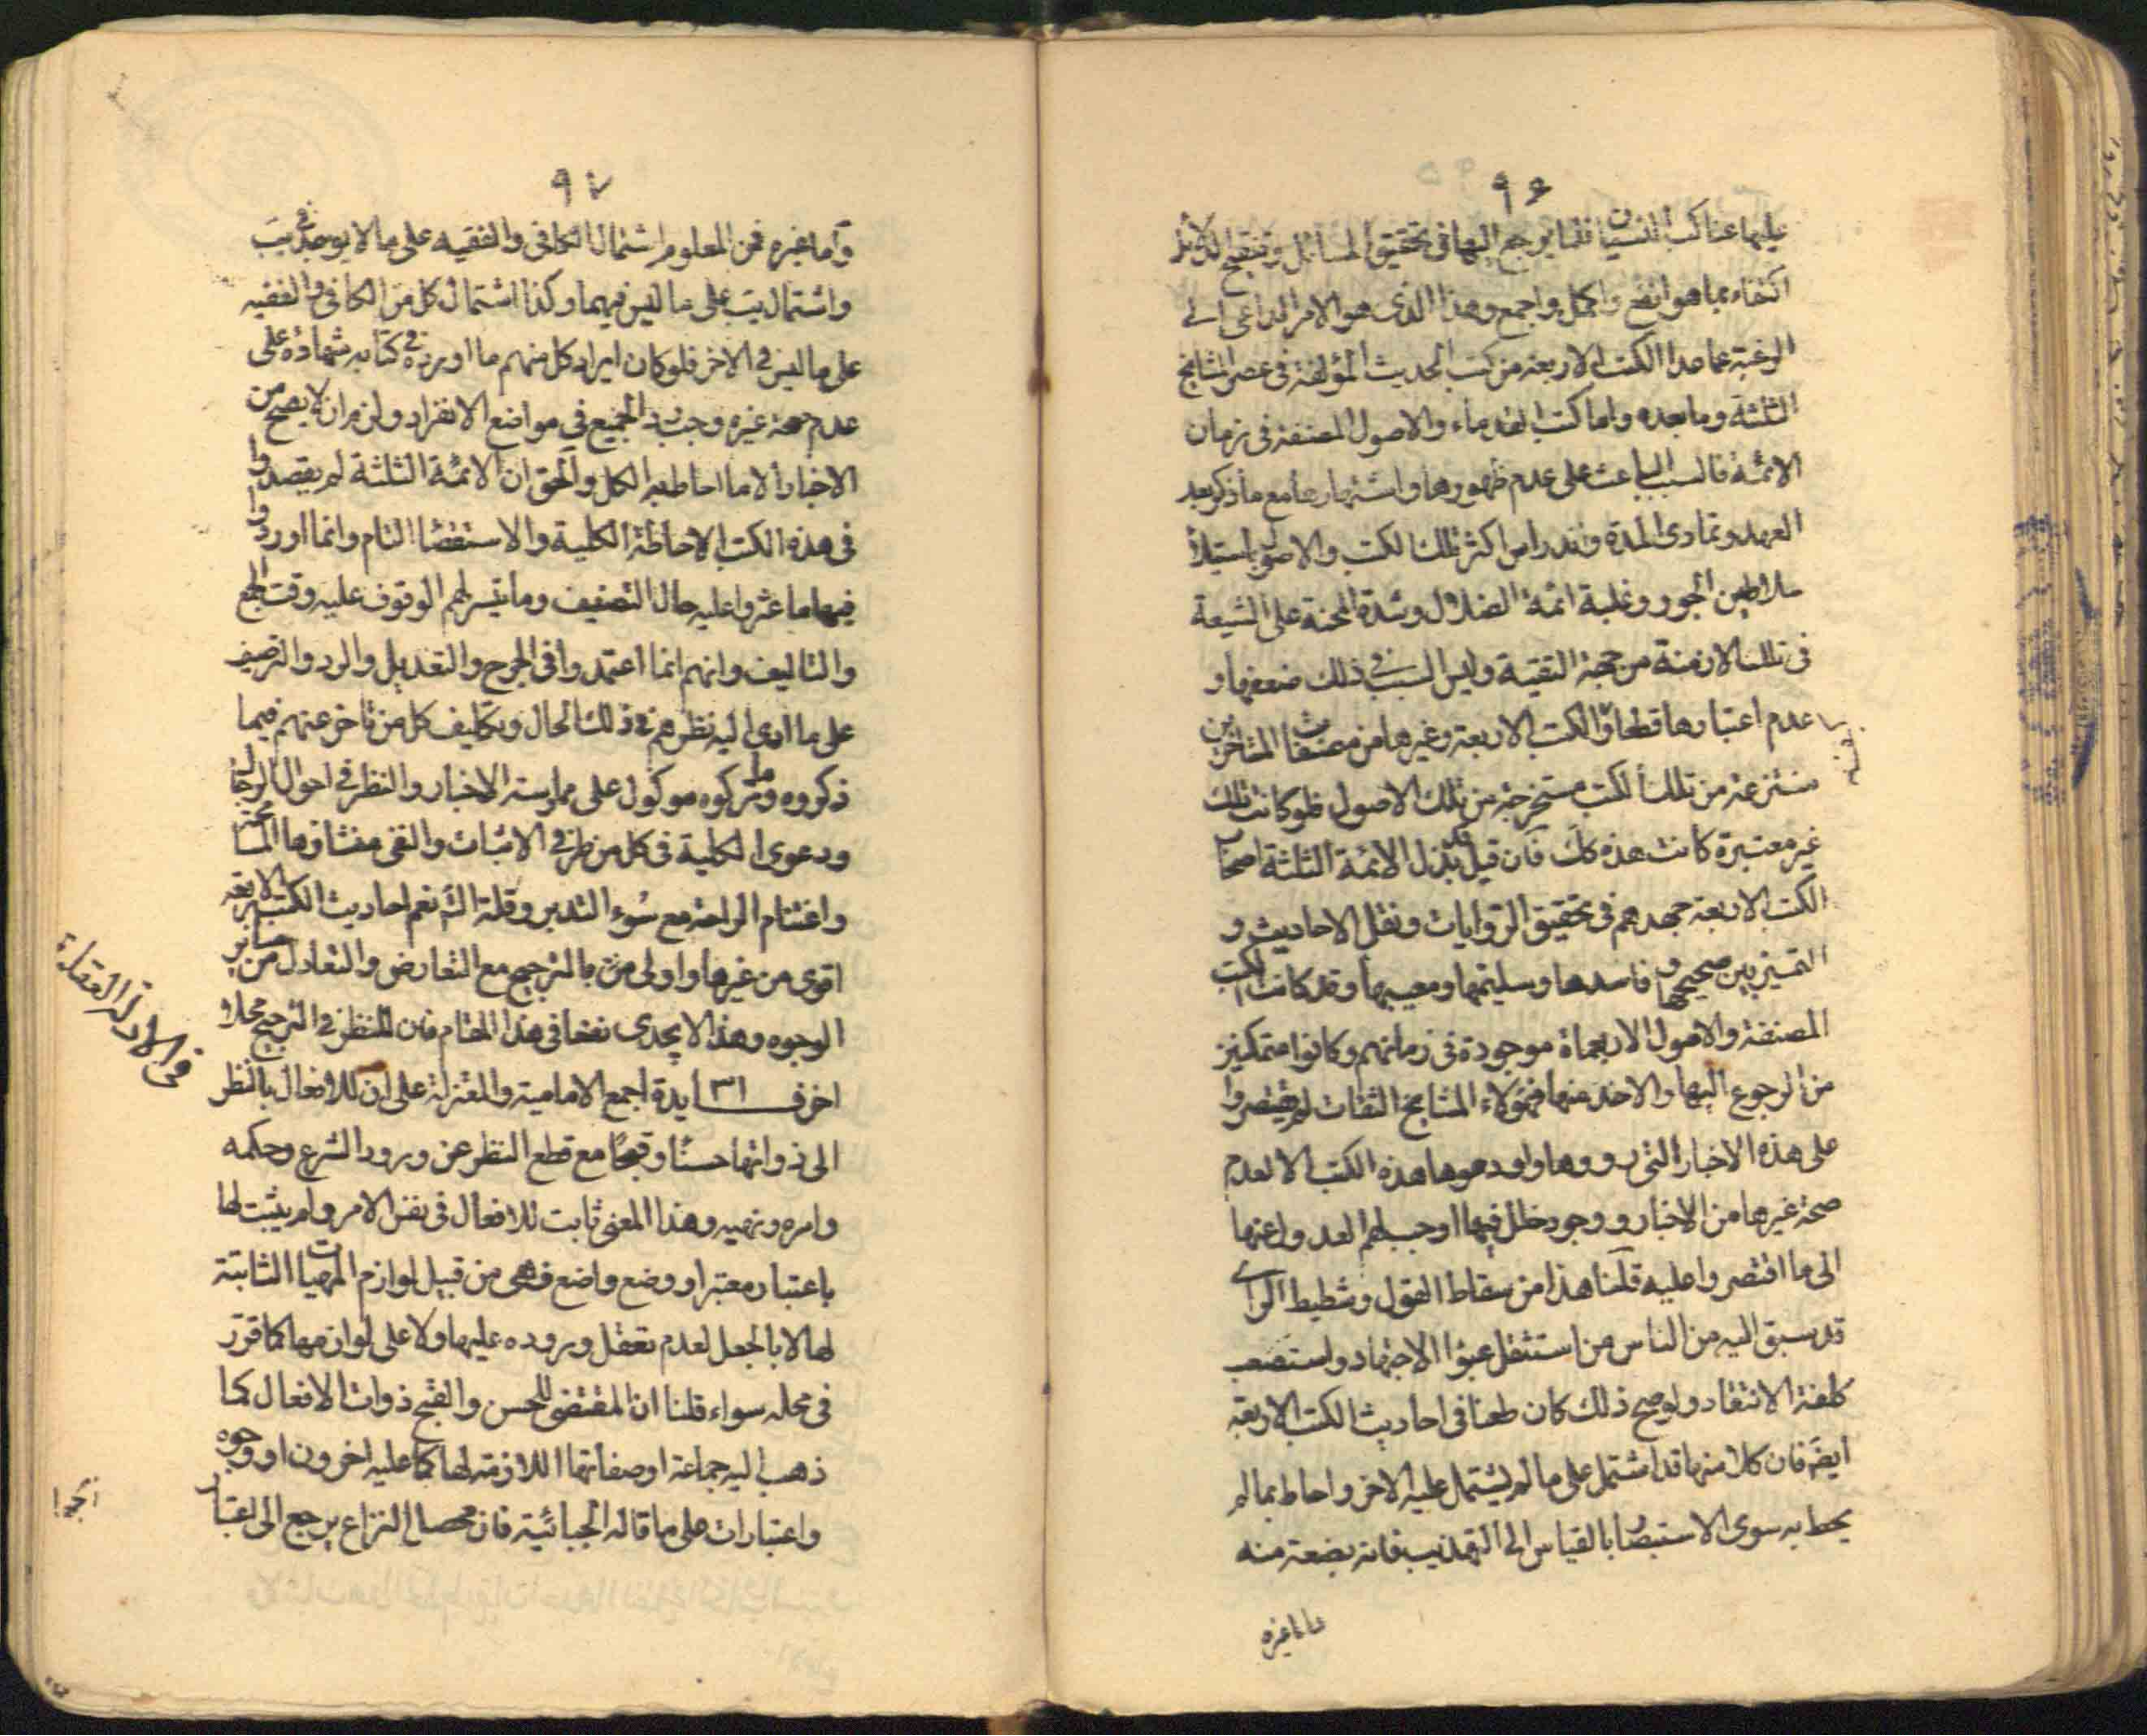 ٩٦
عليها عنا كب النسيان فلما يرجع اليها فى تحقيق المسائل وتنقيح الدلائل
اكتفاء بما هو انفع واكمل واجمع وهذا الذى هو الامر الداعى الى
الرغبة عما عدا الكتب الاربعة من كتب الحديث المؤلفة فى عصر المشايخ
الثلثة وما بعده واما كتب القدماء والاصول المصنفة فى زمان
الائمة فالسبب الباعث على عدم ظهورها واشتهارها مع ما ذكر بعد
العهد وتمادى المدة واندراس اكثر تلك الكتب والاصول باستيلاء
سلاطين الجور وغلبة ائمة الضلال وشدة المحنة على الشيعة
فى تلك الازمنة من جهة التقية وليس السبب فى ذلك ضعفها و
عدم اعتبارها قطعا والكتب الاربعة وغيرها من مصنفات المتاخرين
منتزعة من تلك الكتب مستخرجة من تلك الاصول فلو كانت تلك
غير معتبرة كانت هذه كك فان قيل قد بذل الائمة الثلثة اصحاب
الكتب الاربعة جهدهم فى تحقيق الروايات ونقل الاحاديث و
التميز بين صحيحها وفاسدها وسليمها ومعيبها وقد كانت الكتب
المصنفة والاصول الاربعماة موجودة فى زمانهم وكانوا متمكنين
من الرجوع اليها والاخذ منها فهؤلاء المشايخ الثقات لم يقتصروا
على هذه الاخبار التى رووها واودعوها هذه الكتب الا لعدم
صحة غيرها من الاخبار ووجود خلل فيها اوجب لهم العدول عنها
الى ما اقتصروا عليه قلنا هذا من سقاط القول وشطيط الراى
قد سبق اليه من الناس من استثقل عبؤا الاجتهاد واستصعب
كلفة الانتقاد ولو صح ذلك كان طعنا فى احاديث الكتب الاربعة
ايضً فان كلا منها قد اشتمل على ما لم يشتمل عليه الاخر واحاط بما لم
يحط به سوى الاستبصار بالقياس الى التهذيب فانه بضعة منه
واما غيره
٩٧
واما غيره فمن المعلوم اشتمال الكافى والفقيه على ما لا يوجد فى يب
واشتمال يب على ما ليس فيهما وكذا اشتمال كل من الكافى والفقيه
على ما ليس فى الاخر فلو كان ايراد كل منهم ما اورده فى كتابه شهادة على
عدم صحة غيره وجب رد الجميع فى مواضع الانفراد ولزم ان لا يصح من
الاخبار الا ما احاط به الكل والحق ان الائمة الثلثة لم يقصدوا
فى هذه الكتب الاحاطة الكلية والاستقصا التام وانما اوردوا
فيها ما عثروا عليه حال التصنيف وما تيسر لهم الوقوف عليه وقت الجمع
والتاليف وانهم انما اعتمدوا فى الجرح والتعديل والرد والترصيف
على ما ادى اليه نظرهم فى ذلك الحال وتكليف كل من تاخر عنهم فيما
ذكروه وما تركوه موكول على ممارسة الاخبار والنظر فى احوال الرجال
ودعوى الكلية فى كل من طرفى الاثبات والنفى منشاؤها المسامحة
واغتنام الراحة مع سوء التدبر وقلة التدبر نعم احاديث الكتب الاربعة
اقوى من غيرها واولى منه بالترجيح مع التعارض والتعادل من ساير
الوجوه وهذا لا يجدى نفعا فى هذا المقام فان للنظر فى الترجيح محلا
اخر فــــايدة ٣١ اجمع الامامية والمعتزلة على ان للافعال بالنظر
الى ذواتها حسنًا وقبحًا مع قطع النظر عن ورود الشرع وحكمه
وامره ونهيه وهذا المعنى ثابت للافعال فى نفس الامر ولم يثبت لها
باعتبار معتبر او وضع واضع فهى من قبيل لوازم المهيات الثابتة
لها لا بالجعل لعدم تعقل وروده عليها ولا على لوازمها كما قرر
فى محله سواء قلنا ان المقتضى للحسن والقبح ذوات الافعال كما
ذهب اليه جماعة او صفاتها اللازمة لها كما عليه اخرون او وجوه
واعتبارات على ما قاله الجبائية فان محصل النزاع يرجع الى اعتبار
فى الادلة العقلية